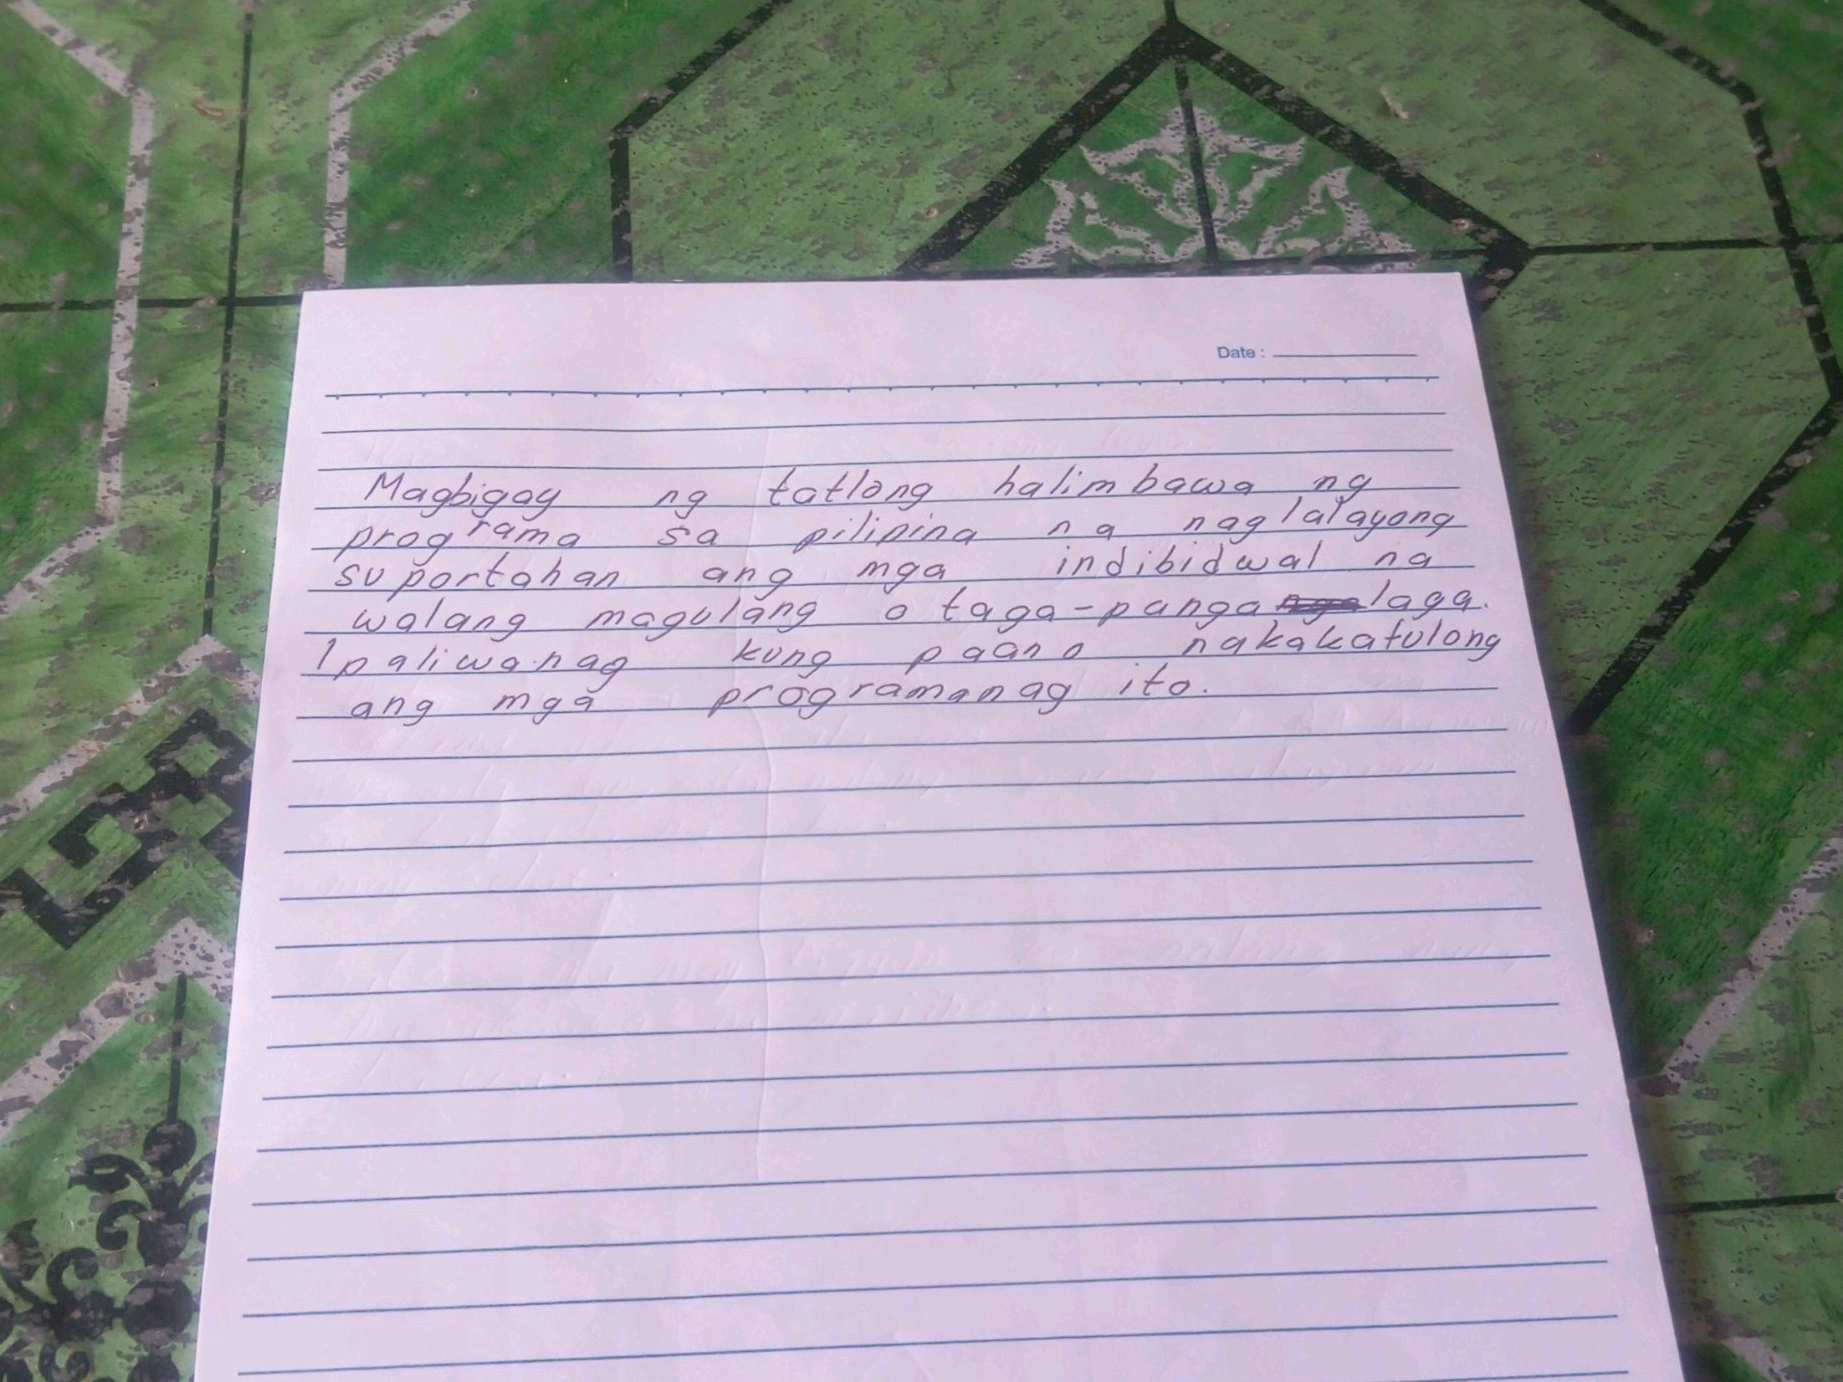 Date :
Magbigay ng tatlong halimbawa ng
programa sa pilipina na naglalayong
suportahan ang mga indibidwal na
walang magulang o taga-pangalaga.
Ipaliwanag kung paano nakakatulong
ang mga programanag ito.